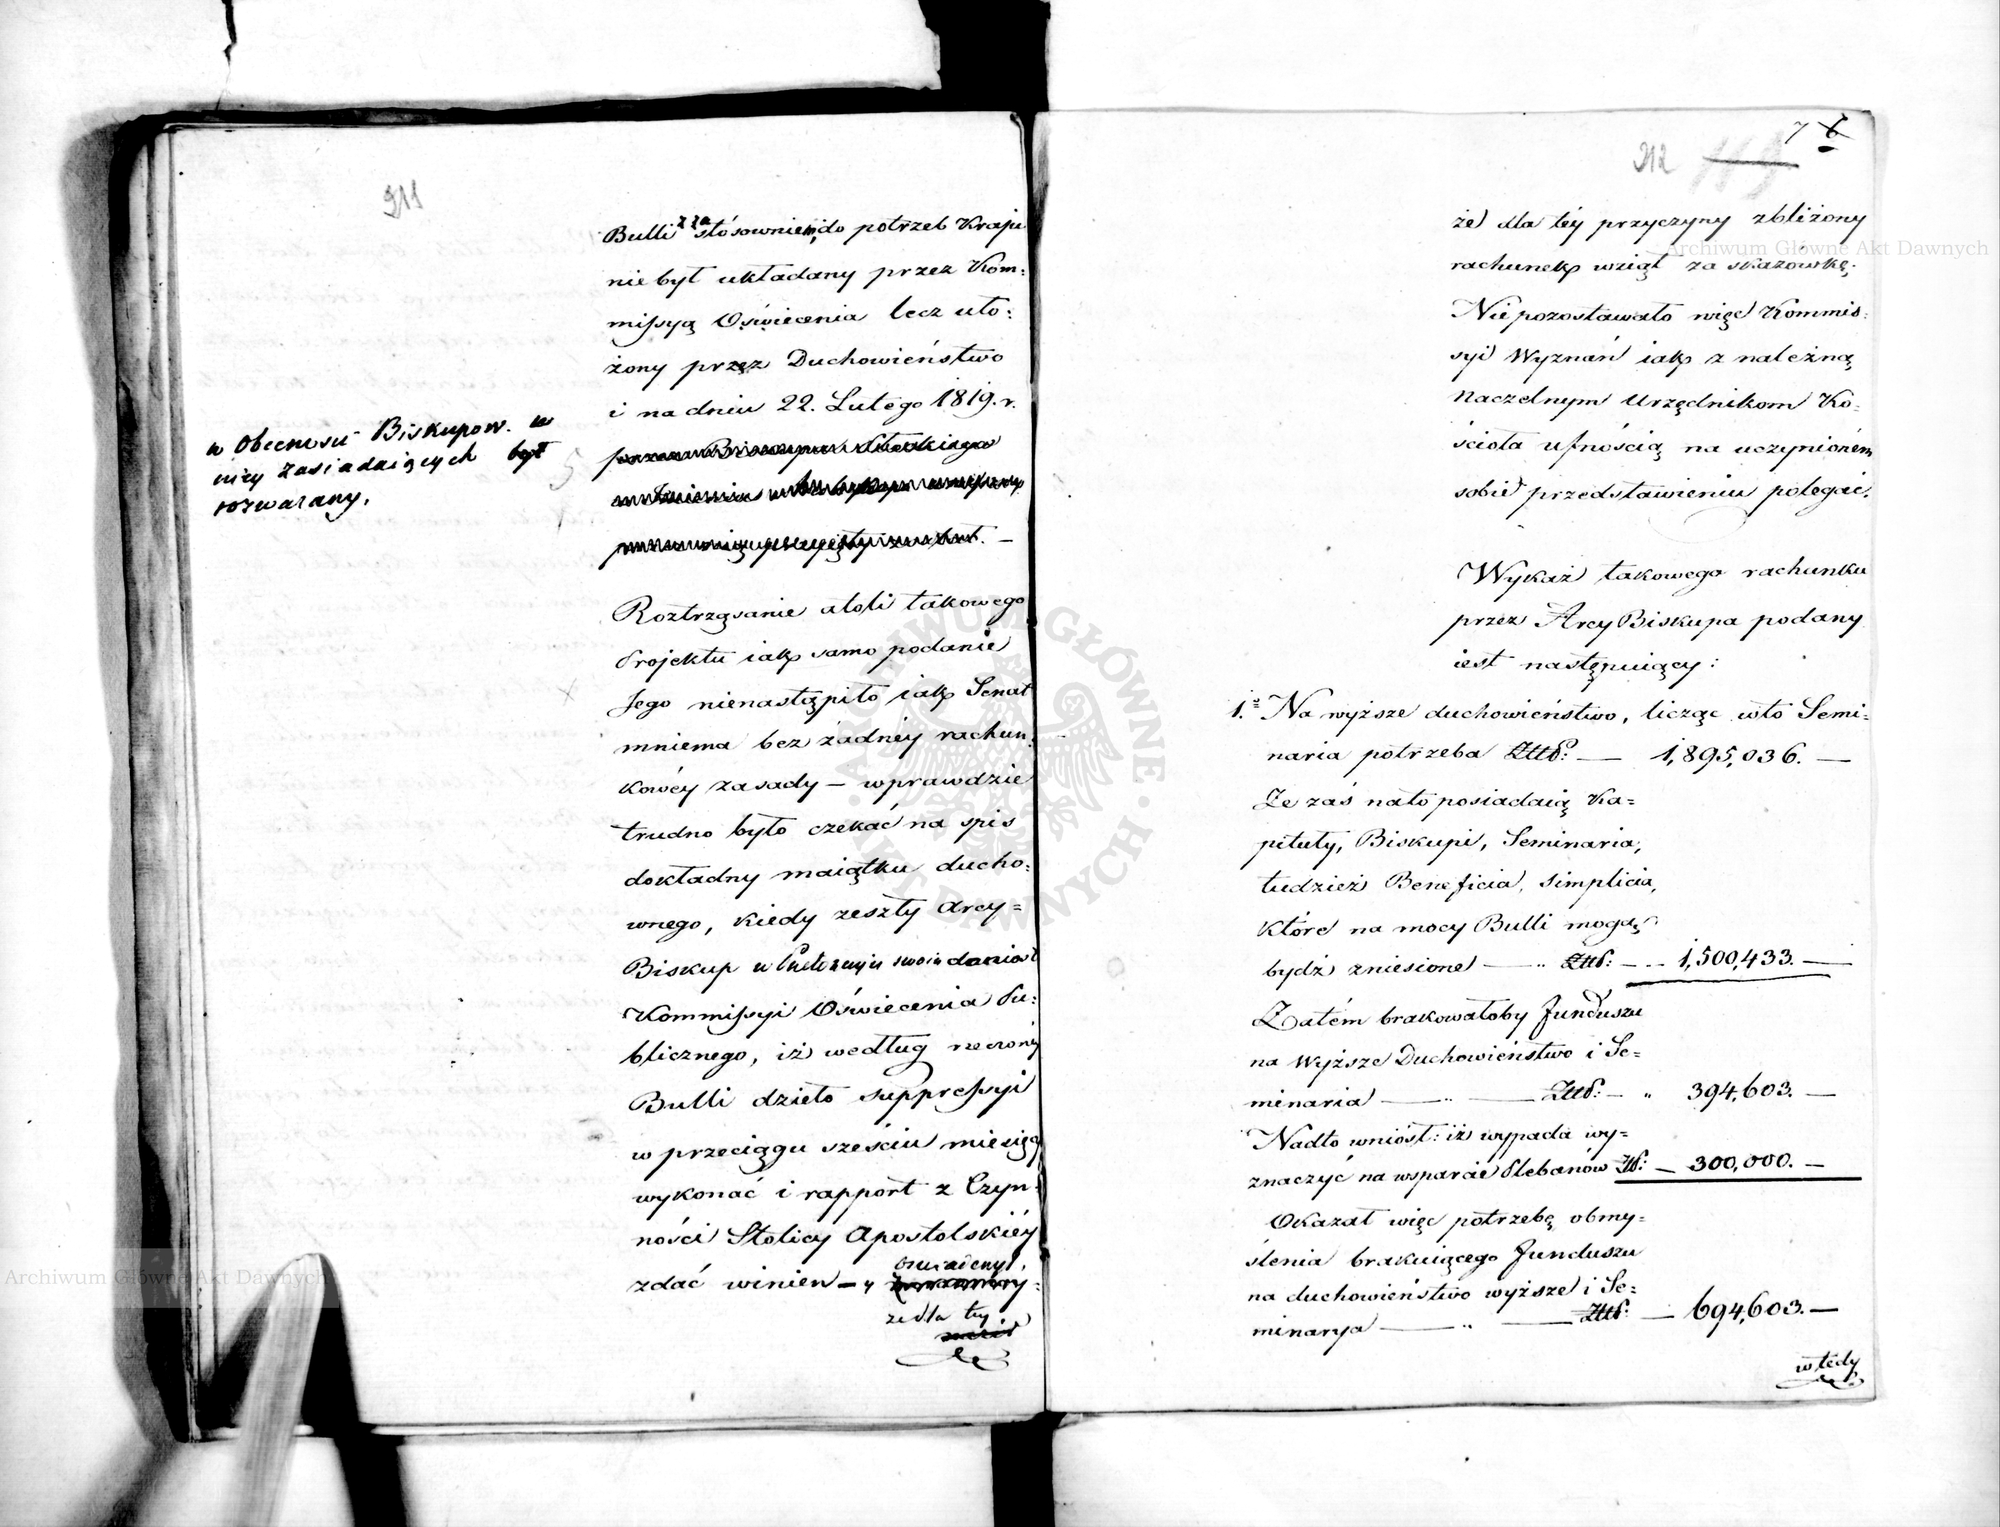 211
Bulli z za stósowniem do potrzeb Kraju
nie był układany przez Kom:
missyą Oświecenia lecz uło:
żony przez Duchowieństwo
i na dniu 22. Lutego 1819. r.
w Obecnosci Biskupow. w
niey zasiadaiących był
rozwarany.
Roztrząsanie atoli takowego
Projektu iak samo podanie
Jego nienastąpiło iak Senat
mniema bez żadnéy rachun:
kowéy zasady – wprawdzie
trudno było czekać na spis
dokładny maiątku ducho:
wnego, kiedy zeszły Arcy=
Biskup w
Kommissyi Oświecenia Pu:
blicznego, iż według rzeczonéy
Bulli dzieło suppressyi
w przeciągu sześciu miesięcy
wykonać i rapport z Czyn:
ności Stolicy Apostolskiéy
zdać winien –
ze dla tey
7 6
212
że dla téy przyczyny zbliżony
rachunek wziął za skazowkę.
Nie pozostawało więc Kommis:
syi Wyznań iak z należną
Naczelnym Urzędnikom Ko:
ścioła ufnością na uczynioném
sobie przedstawieniu polegać.
Wykaz takowego rachunku
przez Arcy Biskupa podany
iest następuiący:
1.e Na wyższe duchowieństwo, licząc wto Semi:
naria potrzeba Złłp: — 1,895,036. —
Ze zaś nato posiadaią Ka=
pituły, Biskupi, Seminaria,
tudzież Beneficia, Simplicia,
które na mocy Bulli mogą
bydź zniesione — Złłp: — 1,500,433. —
Zatém brakowałoby Funduszu
na Wyższe Duchowieństwo i Se=
minaria — — Złłp: — " 394,603. —
Nadto wniósł: iż wypada wy=
znaczyć na wsparcie Plebanów Złp: — 300,000. —
Okazał więc potrzebę obmy=
ślenia brakuiącego Funduszu
na duchowieństwo wyższe i Se=
minarya — " — Złłp: — 694,603. —
wtedy
Archiwum Główne Akt Dawnych
Archiwum Główne Akt Dawnych
ARCHIWUM GŁÓWNE · AKT DAWNYCH ·